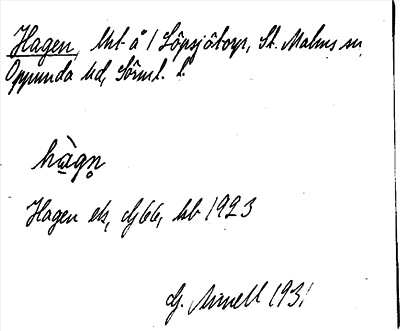 Hagen, lht å 1 Löpsjötorp, St. Malms sn,
Oppunda hd, Sörml. l.
hàgn̥
Hagen ek, dj 66, kb 1923
G. Arnell 1931